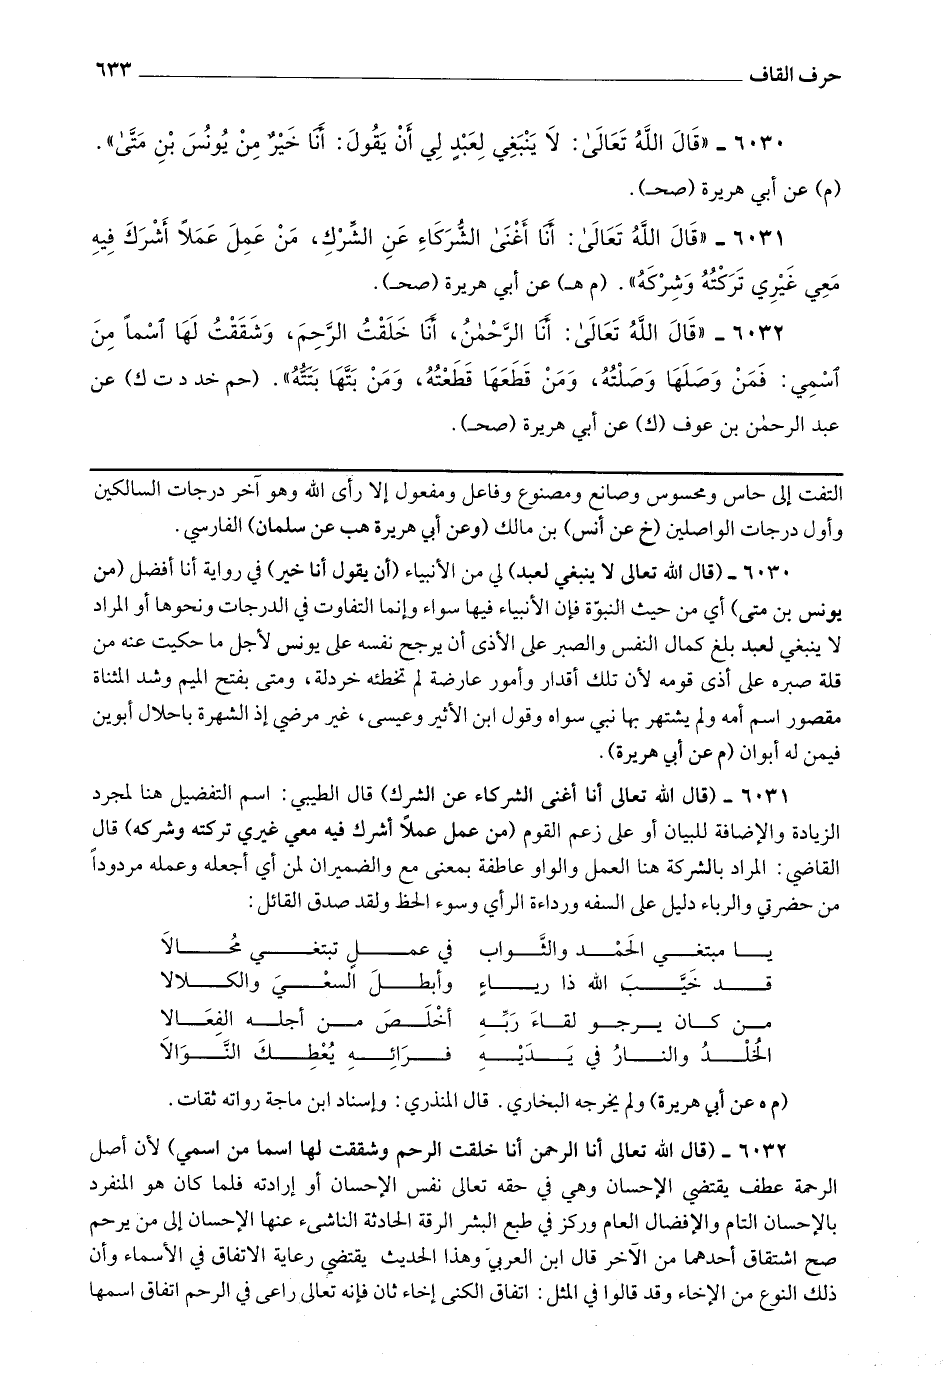 حرف القاف ٦٣٣
٦٠٣٠ ـ «قَالَ اللَّهُ تَعَالَىٰ: لَا يَنْبَغِي لِعَبْدٍ لِي أَنْ يَقُولَ: أَنَا خَيْرٌ مِنْ يُونُسَ بْنِ مَتَّىٰ».
(م) عن أبي هريرة (صحـ).
٦٠٣١ ـ «قَالَ اللَّهُ تَعَالَىٰ: أَنَا أَغْنَىٰ الشُّرَكَاءِ عَنِ الشِّرْكِ، مَنْ عَمِلَ عَمَلًا أَشْرَكَ فِيهِ
مَعِي غَيْرِي تَرَكْتُهُ وَشِرْكَهُ». (م هـ) عن أبي هريرة (صحـ).
٦٠٣٢ ـ «قَالَ اللَّهُ تَعَالَىٰ: أَنَا الرَّحْمٰنُ، أَنَا خَلَقْتُ الرَّحِمَ، وَشَقَقْتُ لَهَا ٱسْماً مِنَ
ٱسْمِي: فَمَنْ وَصَلَهَا وَصَلْتُهُ، وَمَنْ قَطَعَهَا قَطَعْتُهُ، وَمَنْ بَتَّهَا بَتَتُّهُ». (حم خد د ت ك) عن
عبد الرحمٰن بن عوف (ك) عن أبي هريرة (صحـ).
التفت إلى حاس ومحسوس وصانع ومصنوع وفاعل ومفعول إلا رأى الله وهو آخر درجات السالكين
وأول درجات الواصلين (خ عن أنس) بن مالك (وعن أبي هريرة هب عن سلمان) الفارسي.
٦٠٣٠ ـ (قال الله تعالى لا ينبغي لعبد) لي من الأنبياء (أن يقول أنا خير) في رواية أنا أفضل (من
يونس بن متى) أي من حيث النبوّة فإن الأنبياء فيها سواء وإنما التفاوت في الدرجات ونحوها أو المراد
لا ينبغي لعبد بلغ كمال النفس والصبر على الأذى أن يرجح نفسه على يونس لأجل ما حكيت عنه من
قلة صبره على أذى قومه لأن تلك أقدار وأمور عارضة لم تخطئه خردلة، ومتى بفتح الميم وشد المثناة
مقصور اسم أمه ولم يشتهر بها نبي سواه وقول ابن الأثير وعيسى، غير مرضي إذ الشهرة باحلال أبوين
فيمن له أبوان (م عن أبي هريرة).
٦٠٣١ ـ (قال الله تعالى أنا أغنى الشركاء عن الشرك) قال الطيبي: اسم التفضيل هنا لمجرد
الزيادة والإضافة للبيان أو على زعم القوم (من عمل عملاً أشرك فيه معي غيري تركته وشركه) قال
القاضي: المراد بالشركة هنا العمل والواو عاطفة بمعنى مع والضميران لمن أي أجعله وعمله مردوداً
من حضرتي والرياء دليل على السفه ورداءة الرأي وسوء الحظ ولقد صدق القائل:
يــا مبتغــي الحَمْــد والثَّــواب في عمــلٍ تبتغــي مُحــالاَ
قــد خَيَّــبَ الله ذا ريــاءٍ وأبطــلَ السعْــيَ والكــلالا
مــن كــان يــرجــو لقــاءَ رَبِّــه أخْلَــصَ مــن أجلــه الفِعَــالا
الخُلْــدُ والنــارُ في يَــدَيْــهِ فــرَائِــهِ يُعْطِــكَ النَّــوَالاَ
(م ه عن أبي هريرة) ولم يخرجه البخاري. قال المنذري: وإسناد ابن ماجة رواته ثقات.
٦٠٣٢ ـ (قال الله تعالى أنا الرحمن أنا خلقت الرحم وشققت لها اسما من اسمي) لأن أصل
الرحمة عطف يقتضي الإحسان وهي في حقه تعالى نفس الإحسان أو إرادته فلما كان هو المنفرد
بالإحسان التام والإفضال العام وركز في طبع البشر الرقة الحادثة الناشىء عنها الإحسان إلى من يرحم
صح اشتقاق أحدهما من الآخر قال ابن العربيّ وهذا الحديث يقتضي رعاية الاتفاق في الأسماء وأن
ذلك النوع من الإخاء وقد قالوا في المثل: اتفاق الكنى إخاء ثان فإنه تعالى راعى في الرحم اتفاق اسمها